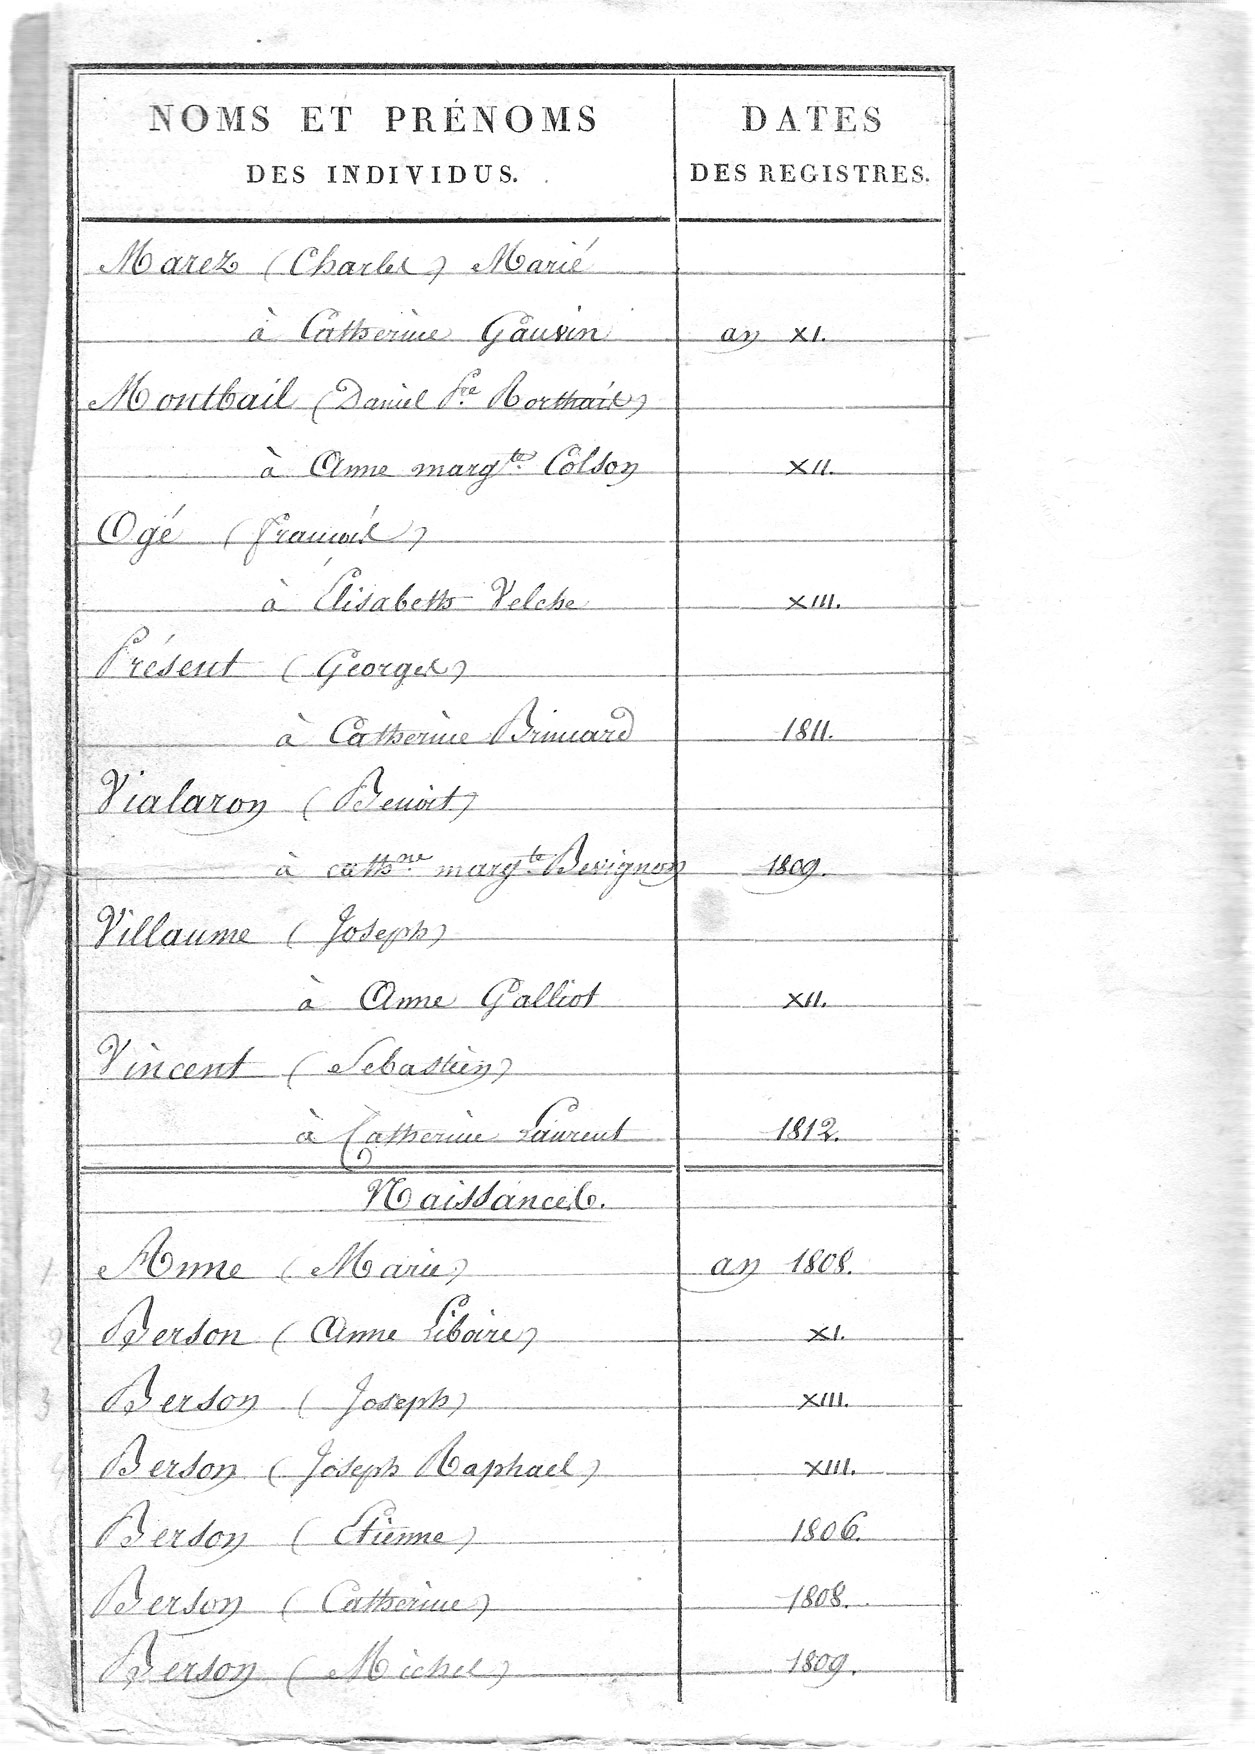 NOMS ET PRÉNOMS
DES INDIVIDUS.
DATES
DES REGISTRES.
Marez (Charles) Marié
à Catherine Gauvin an XI.
Montbail (Daniel Pre Rorthais)
à Anne margte Colson XII.
Ogé (François)
à Élisabeth Velche XIII.
Présent (Georges)
à Catherine Brincard 1811.
Vialaron (Benoit)
à cathne margte Bevignon 1809.
Villaume (Joseph)
à Anne Galliot XII.
Vincent (Sebastien)
à Catherine Laurent 1812.
Naissances.
1 Anne (Marie) an 1808.
2 Berson (Anne Liboire) XI.
3 Berson (Joseph) XIII.
4 Berson (Joseph Raphael) XIII.
Berson (Etienne) 1806.
Berson (Catherine) 1808.
Berson (Michel) 1809.